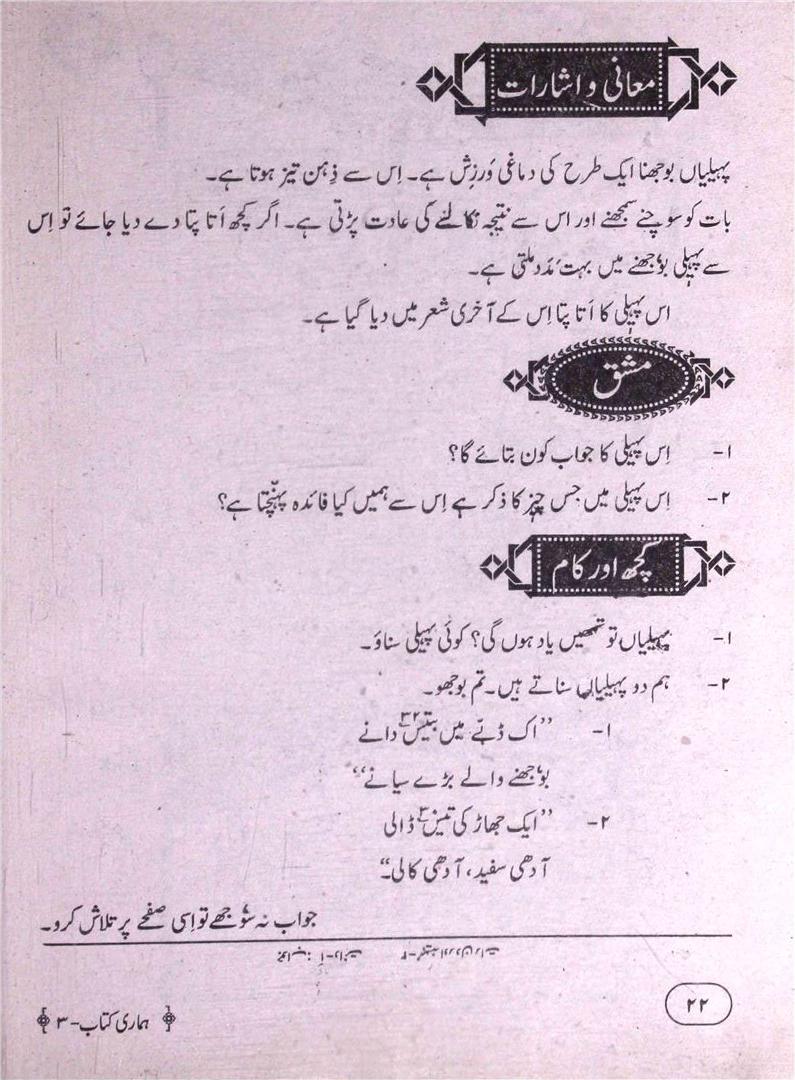 معانی و اشارات
پہیلیاں بوجھنا ایک طرح کی دماغی وَرزِش ہے۔ اِس سے ذِہن تیز ہوتا ہے۔
بات کو سوچنے سمجھنے اور اس سے نتیجہ نکالنے کی عادت پڑتی ہے۔ اگر کچھ اَتا پتا دے دیا جائے تو اِس
سے پہیلی بوٗجھنے میں بہت مَدَد ملتی ہے۔
اس پہیلی کا اَتا پتا اِس کے آخری شعر میں دیا گیا ہے۔
مشق
۱- اِس پہیلی کا جواب کون بتائے گا؟
۲- اِس پہیلی میں جس چیز کا ذکر ہے اِس سے ہمیں کیا فائدہ پہنّچتا ہے؟
کچھ اور کام
۱- پہیلیاں تو تمھیں یاد ہوں گی؟ کوئی پہیلی سناؤ۔
۲- ہم دو پہیلیاں سناتے ہیں۔ تم بوجھو۔
۱- ”اک ڈبّے میں بتیّس ۳۲ دانے
بوٗجھنے والے بڑے سیانے“
۲- ”ایک جھاڑ کی تیس ۳۰ ڈالی
آدھی سفید، آدھی کالی۔“
جواب نہ سوٗجھے تو اِسی صفحے پر تلاش کرو۔
جواب: ۱- دانت ۲- مہینہ اور دن رات
۲۲
ہماری کتاب - ۳